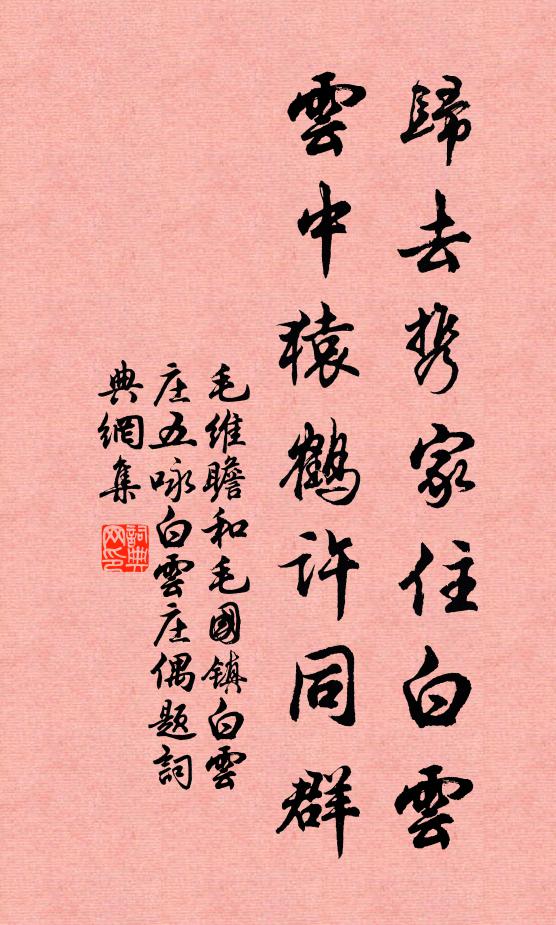 歸去携家住白雲
雲中猿鶴許同群
毛維瞻和毛國鎮白雲
庄五咏白雲庄偶題詞
典網集
詞典
网印